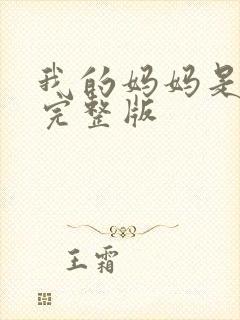 我的妈妈是
完整版
王霜